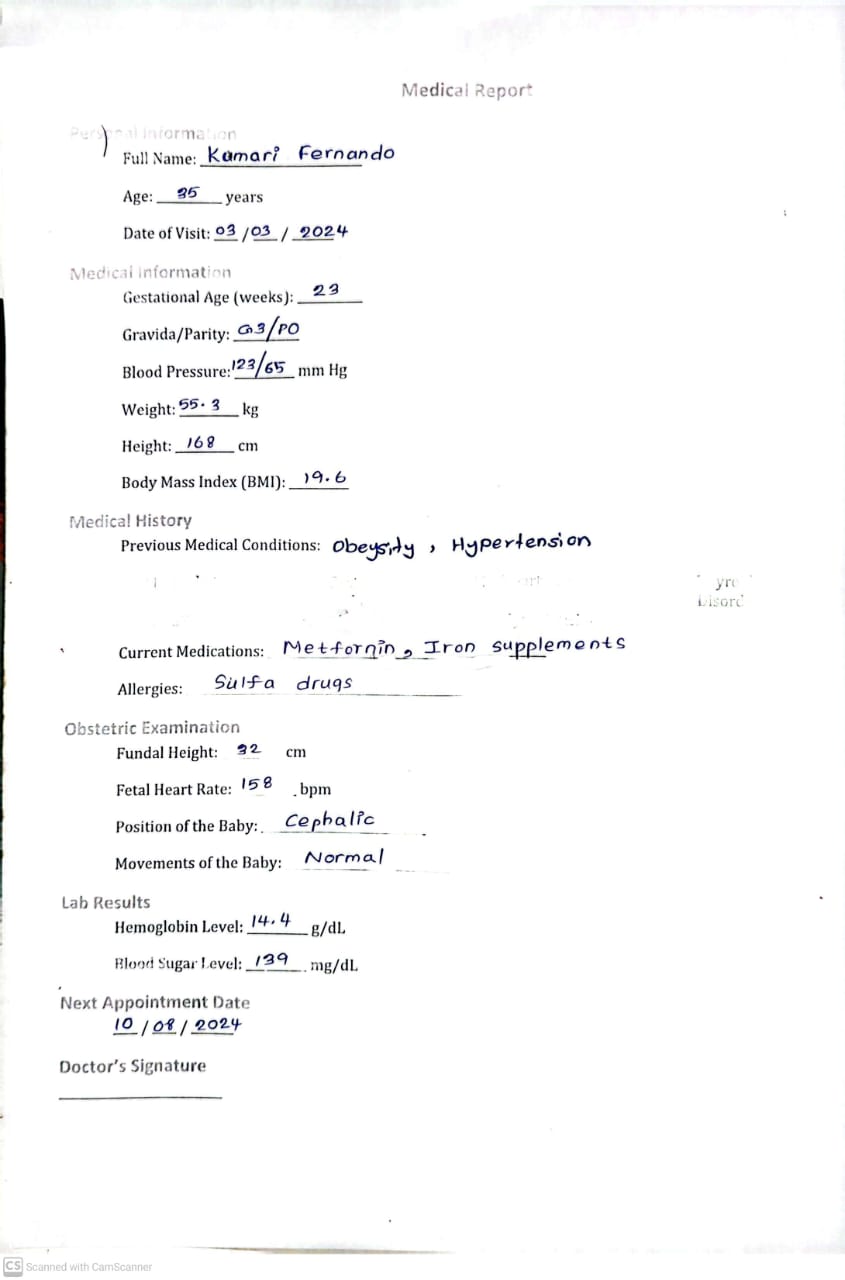 Medical Report
Personal Information
Full Name: Kumari Fernando
Age: 35 years
Date of Visit: 03/03/2024
Medical Information
Gestational Age (weeks): 23
Gravida/Parity: G3/P0
Blood Pressure: 123/65 mm Hg
Weight: 55.3 kg
Height: 168 cm
Body Mass Index (BMI): 19.6
Medical History
Previous Medical Conditions: Obeysity, Hypertension
Current Medications: Metformin, Iron supplements
Allergies: Sulfa drugs
Obstetric Examination
Fundal Height: 32 cm
Fetal Heart Rate: 158 bpm
Position of the Baby: Cephalic
Movements of the Baby: Normal
Lab Results
Hemoglobin Level: 14.4 g/dL
Blood Sugar Level: 139 mg/dL
Next Appointment Date
10/08/2024
Doctor's Signature
CS Scanned with CamScanner